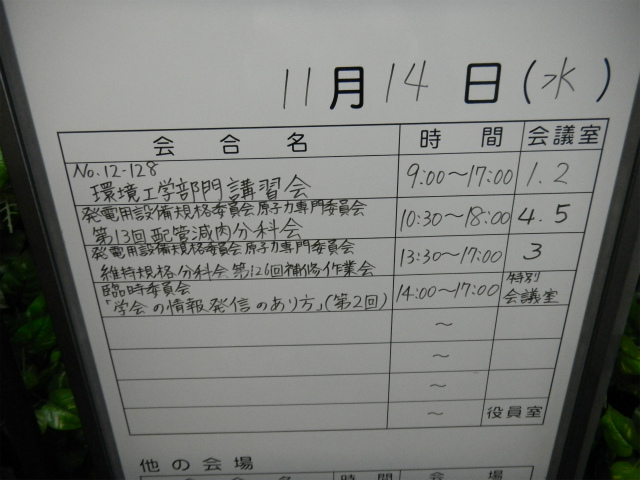 11月14日(水)
会合名 時間 会議室
No.12-128
環境工学部門講習会 9:00〜17:00 1.2
発電用設備規格委員会原子力専門委員会
第13回配管減肉分科会 10:30〜18:00 4.5
発電用設備規格委員会原子力専門委員会
維持規格分科会第126回補修作業会 13:30〜17:00 3
臨時委員会
「学会の情報発信のあり方」(第2回) 14:00〜17:00 特別会議室
〜
〜
〜
〜 役員室
他の会場
会合名 時間 会場